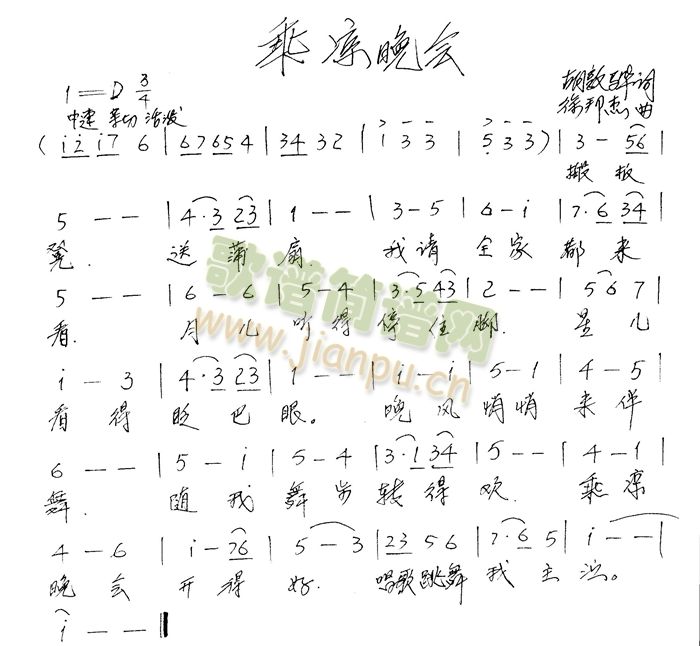 乘凉晚会
1=D 3/4
中速 亲切 活泼
胡敦骅 词
徐邦杰 曲
( i 2 i 7 6 | 6 7 6 5 4 | 3 4 3 2 | i 3 3 | 5 3 3 ) | 3 - 5 6 |
搬板
5 - - | 4 · 3 2 3 | 1 - - | 3 - 5 | 6 - i | 7 · 6 3 4 |
凳. 送蒲扇. 我请全家都来
5 - - | 6 - 6 | 5 - 4 | 3 · 5 4 3 | 2 - - | 5 6 7 |
看. 月儿听得停住脚. 星儿
i - 3 | 4 · 3 2 3 | 1 - - | i - i | 5 - 1 | 4 - 5 |
看得眨巴眼。 晚风悄悄来伴
6 - - | 5 - i | 5 - 4 | 3 · 1 3 4 | 5 - - | 4 - 1 |
舞. 随我舞步转得欢. 乘凉
4 - 6 | i - 7 6 | 5 - 3 | 2 3 5 6 | 7 · 6 5 | i - - |
晚会开得好. 唱歌跳舞我主
i - - ‖
歌谱简谱网
www.jianpu.cn